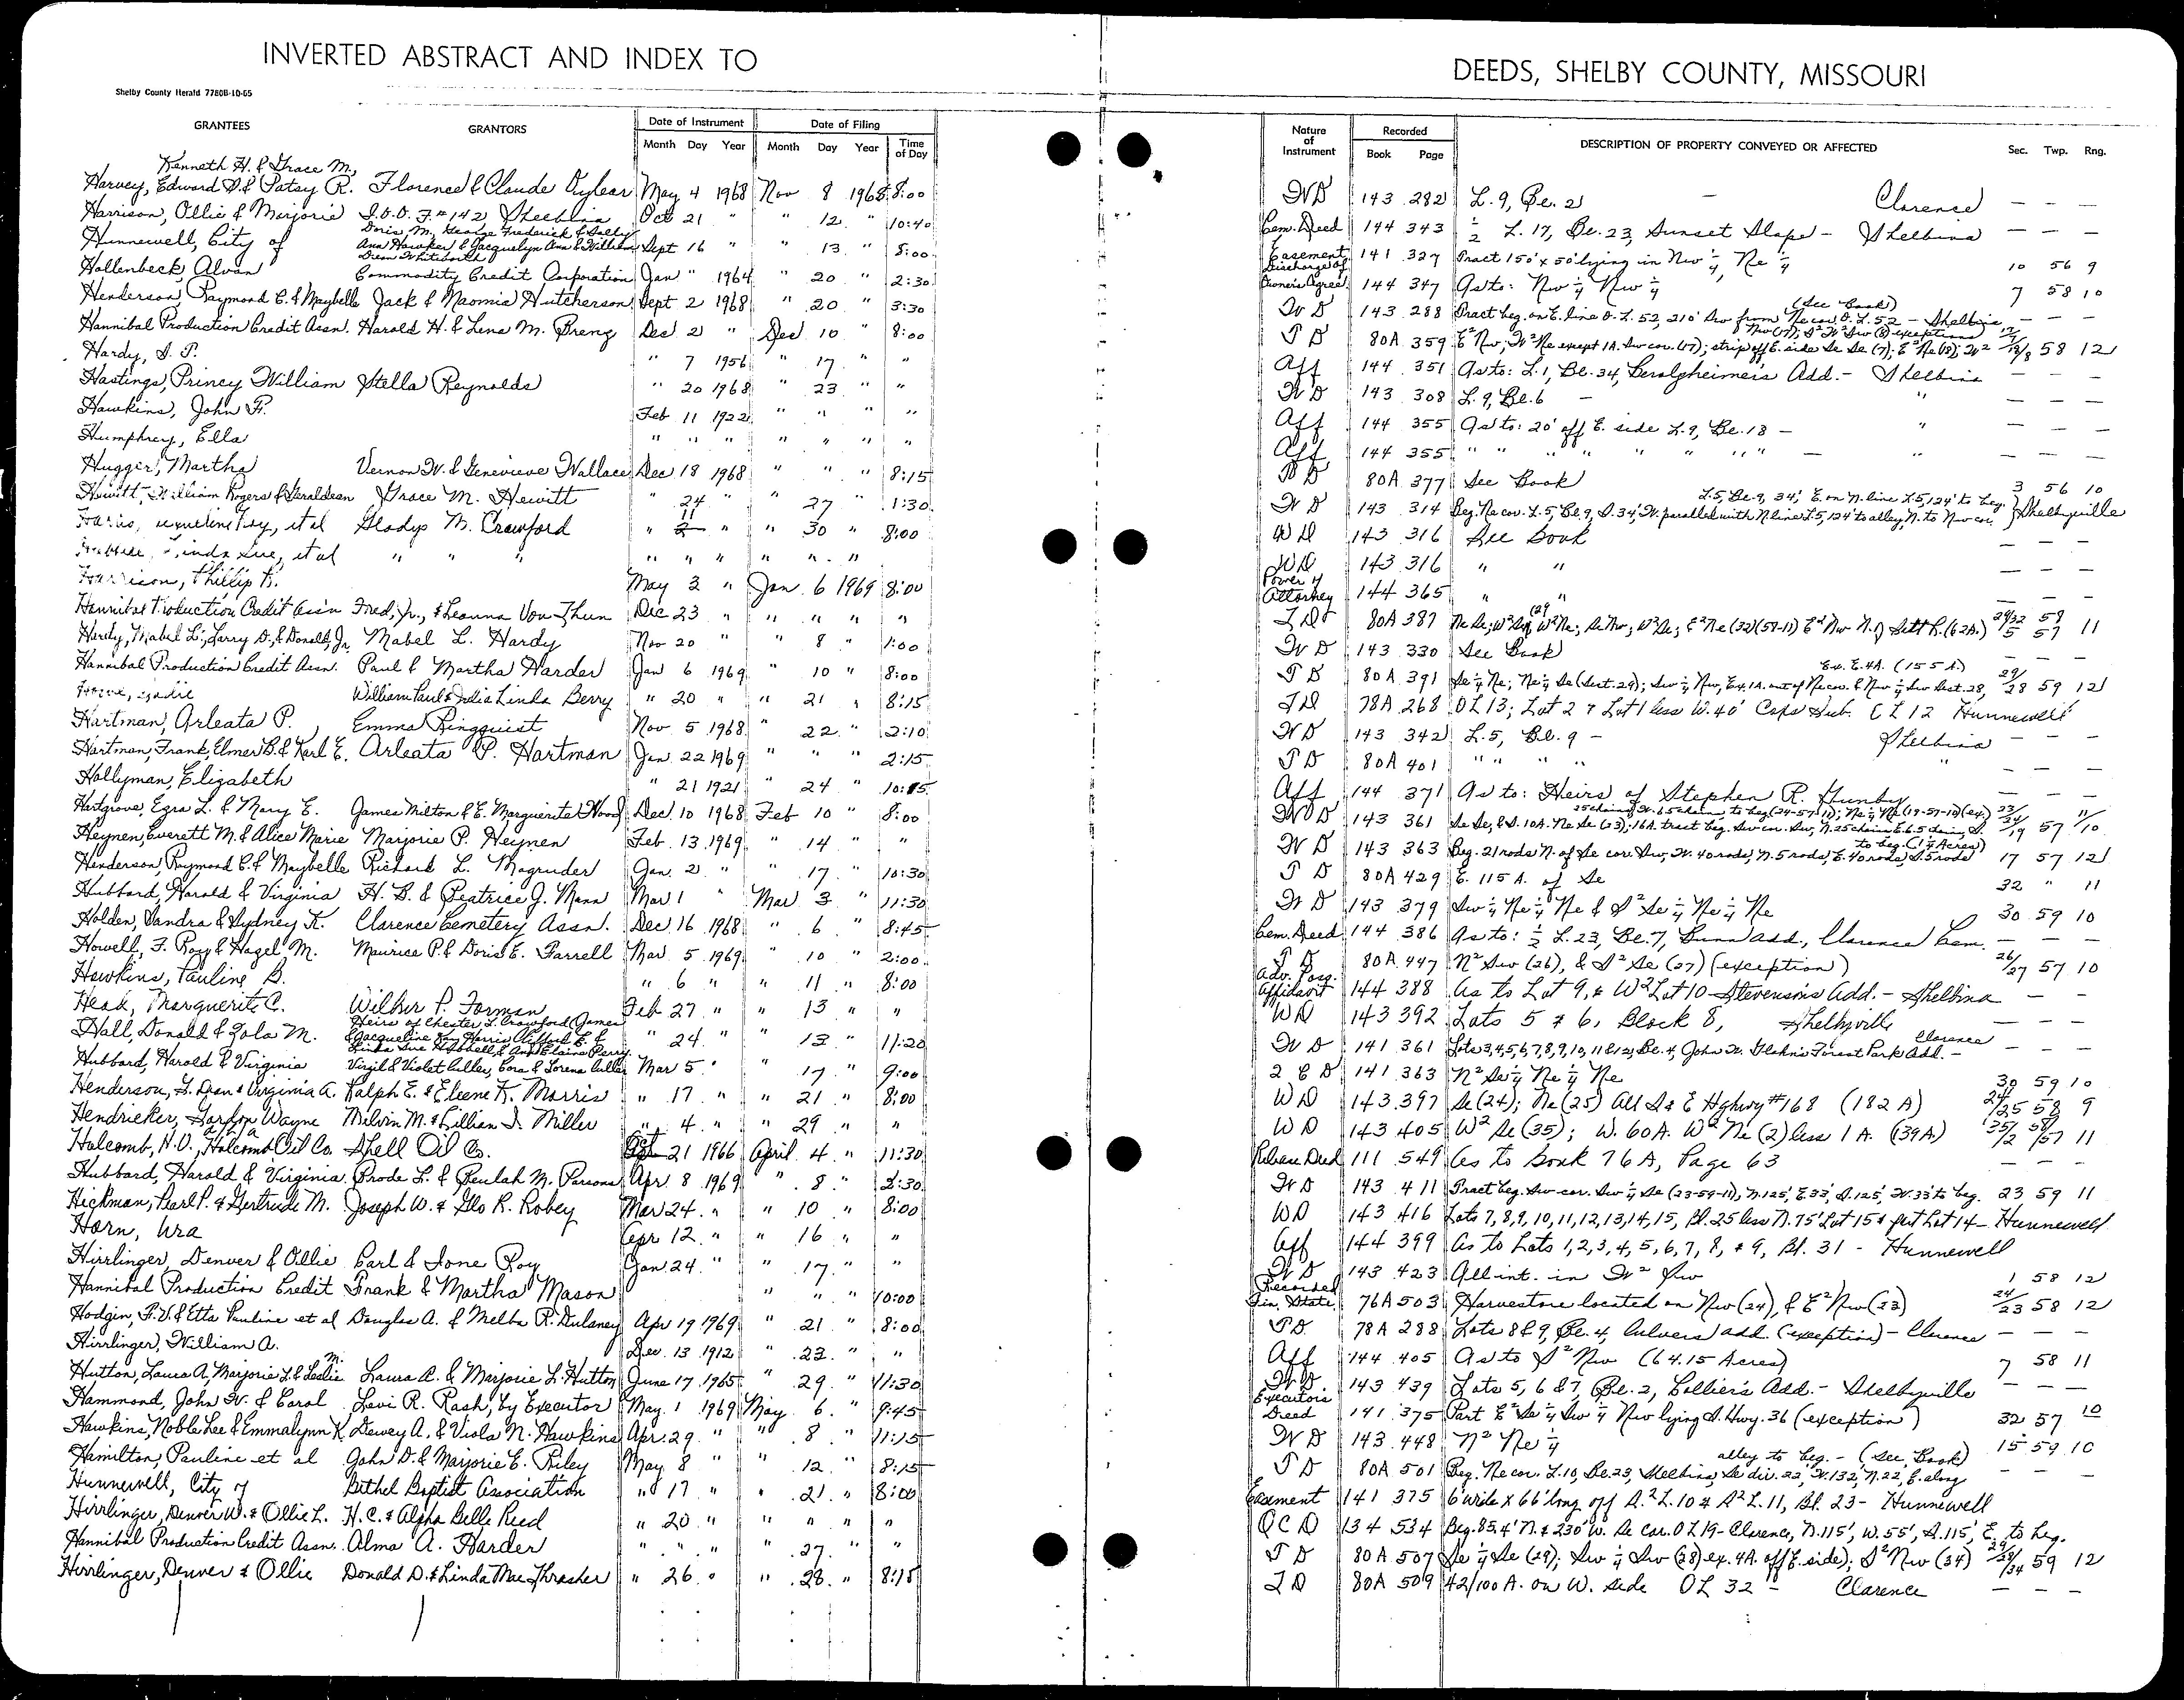 INVERTED ABSTRACT AND INDEX TO DEEDS, SHELBY COUNTY, MISSOURI
Shelby County Herald 7780B-10-65
GRANTEES GRANTORS Date of Instrument Month Day Year Date of Filing Month Day Year Time of Day Nature of Instrument Recorded Book Page DESCRIPTION OF PROPERTY CONVEYED OR AFFECTED Sec. Twp. Rng.
Kenneth H. & Grace M.,
Harvey, Edward D. & Patsy R. Florence & Claude May 4 1968 Nov 8 1968 8:00 WD 143 282 L. 9, Bl. 2 - Clarence — — —
Harrison, Ollie & Marjorie I.O.O.F. #142 Shelbina Oct 21 " " 12 " 10:40 Cem. Deed 144 343 1/2 L. 17, Bl. 23, Sunset Slope - Shelbina — — —
Hunnewell, City of Doris M., George Frederick & Sally Ann Hawker & Jacquelyn Ann & William Dean Whitworth Sept 16 " " 13 " 8:00 Easement 141 327 Tract 150' x 50' lying in Nw 1/4, Ne 1/4 10 56 9
Hollenbeck, Alvan Commodity Credit Corporation Jan " 1964 " 20 " 2:30 Discharge of 144 347 As to: Nw 1/4 Nw 1/4 7 58 10
Henderson, Raymond C. & Maybelle Jack & Naomia Hutcherson Sept 2 1968 " 20 " 3:30 WD 143 288 Tract beg. on E. line O.L. 52, 210' Sw from Ne cor. O.L. 52 - Shelbina (See Book) — — —
Hannibal Production Credit Assn. Harold H. & Lena M. Dec 2 " Dec 10 " 8:00 TD 80A 359 E² Nw; W² Ne except 1A. Sw cor. (17); strip off E. side Se Se (7); E² Ne (18); W² 58 12
Hardy, S. P. " 7 1956 " 17 " " Aff 144 351 As to: L. 1, Bl. 34, Add. - Shelbina — — —
Hastings, Princy William Stella Reynolds " 20 1968 " 23 " " WD 143 308 L. 9, Bl. 6 - " — — —
Hawkins, John F. Feb 11 1922 " " " " Aff 144 355 As to: 20' off E. side L. 9, Bl. 18 - " — — —
Humphrey, Ella " " " " " " " Aff 144 355 " " " " " " " - " — — —
Hugger, Martha Vernon W. & Genevieve Wallace Dec 18 1968 " " " 8:15 80A 377 See Book 3 56 10
Hewitt, William Rogers & Geraldean Grace M. Hewitt " 24 " " 27 " 1:30 WD 143 314 Beg. Ne cor. L. 5, Bl. 9, S. 34', W. parallel with N. line L. 5, 124' to alley, N. to Nw cor. L. 5, Bl. 9, 34', E. on N. line L. 5, 124' to beg. } Shelbyville
et al Gladys M. Crawford " 11 " " 30 " 8:00 WD 143 316 See Book — — —
Linda Sue, et al " " " " " " " " " " WD 143 316 " " — — —
Harrison, Phillip May 3 " Jan. 6 1969 8:00 Power of Attorney 144 365 " " — — —
Hannibal Production Credit Ass'n Fred, Jr., & Leanna Von Thun Dec 23 " " " " " TD 80A 387 Ne Se; W² Se W² Ne; Se Nw; W² Se; E² Ne (32) (58-11) E² Nw N. of (62A.) 11
Hardy, Mabel L., Larry D., & Donald, Jr. Mabel L. Hardy Nov 20 " " 8 " 1:00 WD 143 330 See Book — — —
Hannibal Production Credit Assn. Paul & Martha Harder Jan 6 1969 " 10 " 8:00 TD 80A 391 Se 1/4 Ne; Ne 1/4 Se (Sect. 29); Sw 1/4 Nw, Ex. 1A. out of Ne cor. & Nw 1/4 Sw Sect. 28, Ex. E. 4A. (155 A.) 29/28 59 12
William Paul & Julia Linda Berry " 20 " " 21 " 8:15 TD 78A 268 OL 13; Lot 2 & Lot 1 less W. 40' Sub. OL 12 Hunnewell
Hartman, Arleata P. Emma Ringquist Nov 5 1968 " 22 " 2:10 WD 143 342 L. 5, Bl. 9 - Shelbina — — —
Hartman, Frank, Elmer B. & Karl E. Arleata P. Hartman Jan. 22 1969 " " " 2:15 TD 80A 401 " " " " " — — —
Hollyman, Elizabeth " 21 1921 " 24 " 10:15 Aff 144 371 As to: Heirs of Stephen R. — — —
Hartgrove, Ezra L. & Mary E. James Milton & E. Marguerite Wood Dec. 10 1968 Feb 10 " 8:00 WD 143 361 Se Se, & S. 10A. Ne Se (23); 16A. tract beg. Sw cor. Sw, N. 25 chains E. 6.5 chains, S. 25 chains, W. 6.5 chains to beg (24-57-11); Ne 1/4 Ne (19-57-10) 23/24/19 57 11/10
Heynen, Everett M. & Alice Marie Marjorie P. Heynen Feb. 13 1969 " 14 " " WD 143 363 Beg. 21 rods N. of Se cor. Sw, W. 40 rods, N. 5 rods, E. 40 rods, S. 5 rods to beg. (1 1/4 Acres) 17 57 12
Henderson, Raymond C. & Maybelle Richard L. Magruder Jan. 2 " " 17 " 10:30 TD 80A 429 E. 115 A. of Se 32 " 11
Hubbard, Harold & Virginia H. B. & Beatrice J. Mann Mar 1 " Mar 3 " 11:30 WD 143 379 Sw 1/4 Ne 1/4 Ne & S² Se 1/4 Ne 1/4 Ne 30 59 10
Holden, Sandra & Sydney K. Clarence Cemetery Assn. Dec 16 1968 " 6 " 8:45 Cem. Deed 144 386 As to: 1/2 L. 23, Bl. 7, Bunn Add., Clarence Cem. — — —
Howell, F. Roy & Hazel M. Maurice P. & Doris E. Farrell Mar 5 1969 " 10 " 2:00 TD 80A 447 N² Sw (26), & S² Se (27) (exception) 26/27 57 10
Hawkins, Pauline B. " 6 " " 11 " 8:00 Adv. Poss. Affidavit 144 388 As to Lot 9, & W² Lot 10 Stevenson's Add. - Shelbina — —
Heak, Marguerite C. Wilbur P. Forman Feb 27 " " 13 " " WD 143 392 Lots 5 & 6, Block 8, Shelbyville — — —
Hall, Donald & Zola M. Heirs of Chester L. Crawford (James & Jacqueline Kay Harris Clifford E. & Linda Sue Hubbell & Ann Elaine Perry " 24 " " 13 " 11:20 WD 141 361 Lots 3, 4, 5, 6, 7, 8, 9, 10, 11 & 12, Bl. 4, John W. Forest Park Add. - Clarence — — —
Hubbard, Harold & Virginia Virgil & Violet Culler, Cora & Lorena Culler Mar 5 " " 17 " 9:00 QCD 141 363 N² Se 1/4 Ne 1/4 Ne 30 59 10
Henderson, L. Dean & Virginia A. Ralph E. & Eleene K. Morris " 17 " " 21 " 8:00 WD 143 397 Se (24); Ne (25) All S & E Highway #168 (182 A) 24/25 58 9
Hendricker, Wayne Melvin M. & Lillian I. Miller " 4 " " 29 " " WD 143 405 W² Se (35); W. 60A. W² Ne (2) less 1 A. (139A) 35/2 58/57 11
Holcomb, H.O., Holcomb Oil Co. Shell Oil Co. Oct 21 1966 April 4 " 11:30 Release Deed 111 549 As to Book 76A, Page 63 — — —
Hubbard, Harold & Virginia Prode L. & Beulah M. Parsons Apr. 8 1969 " 8 " 2:30 WD 143 411 Tract beg. Sw cor. Sw 1/4 Se (23-59-11), N. 125', E 33', S. 125', W. 33' to beg. 23 59 11
Hickman, Pearl P. & Gertrude M. Joseph W. & Glo R. Robey Mar 24 " " 10 " 8:00 WD 143 416 Lots 7, 8, 9, 10, 11, 12, 13, 14, 15, Bl. 25 less N. 75' Lot 15 & part Lot 14 - Hunnewell
Horn, Ura Apr 12 " " 16 " " Aff 144 399 As to Lots 1, 2, 3, 4, 5, 6, 7, 8, & 9, Bl. 31 - Hunnewell
Hirrlinger, Denver & Ollie Carl & Ione Roy Jan 24 " " 17 " " WD 143 423 All int. in W² Sw 1 58 12
Hannibal Production Credit Frank & Martha Mason " " " 10:00 Recorded Fin. State. 76A 503 Harvestore located on Nw (24), & E² Nw (23) 24/23 58 12
Hodgin, F. V. & Etta Pauline et al Douglas A. & Melba R. Dulaney Apr 19 1969 " 21 " 8:00 TD 78A 288 Lots 8 & 9, Bl. 4, Culvers Add. (exception) - Clarence — — —
Hirrlinger, William A. Dec. 13 1912 " 23 " " Aff 144 405 As to S² Nw (64.15 Acres) 7 58 11
Hutton, Laura A, Marjorie L. & Leslie M. Laura A. & Marjorie L. Hutton June 17 1965 " 29 " 11:30 WD 143 439 Lots 5, 6 & 7, Bl. 2, Collier's Add. - Shelbyville — — —
Hammond, John W. & Carol Levi R. Rash, by Executor May 1 1969 May 6 " 9:45 Executors Deed 141 375 Part E² Se 1/4 Sw 1/4 Nw lying S. Hwy. 36 (exception) 32 57 10
Hawkins, Noble Lee & Emmalynn K. Dewey A. & Viola N. Hawkins Apr. 29 " " 8 " 11:15 WD 143 448 N² Ne 1/4 15 59 10
Hamilton, Pauline et al John D. & Marjorie E. Riley May 8 " " 12 " 8:15 TD 80A 501 Beg. Ne cor. L. 10, Bl. 23, Shelbina, Se div. 22', W. 132', N. 22', E. along alley to beg. - (See Book) — — —
Hunnewell, City of Bethel Baptist Association " 17 " " 21 " 8:00 Easement 141 375 6' wide x 66' long off S.² L. 10 & S² L. 11, Bl. 23 - Hunnewell
Hirrlinger, Denver W. & Ollie L. H. C. & Alpha Belle Reed " 20 " " " " " QCD 134 534 Beg. 85.4' N. & 230' W. Se cor. OL 19 - Clarence, N. 115', W. 55', S. 115', E. to beg.
Hannibal Production Credit Assn. Alma A. Harder " " " " 27 " " TD 80A 507 Se 1/4 Se (29); Sw 1/4 Sw (28) ex. 4A. off E. side); S² Nw (34) 29/28/34 59 12
Hirrlinger, Denver & Ollie Donald D. & Linda Mae Thrasher " 26 " " 28 " 8:15 TD 80A 509 42/100 A. on W. side OL 32 - Clarence — — —